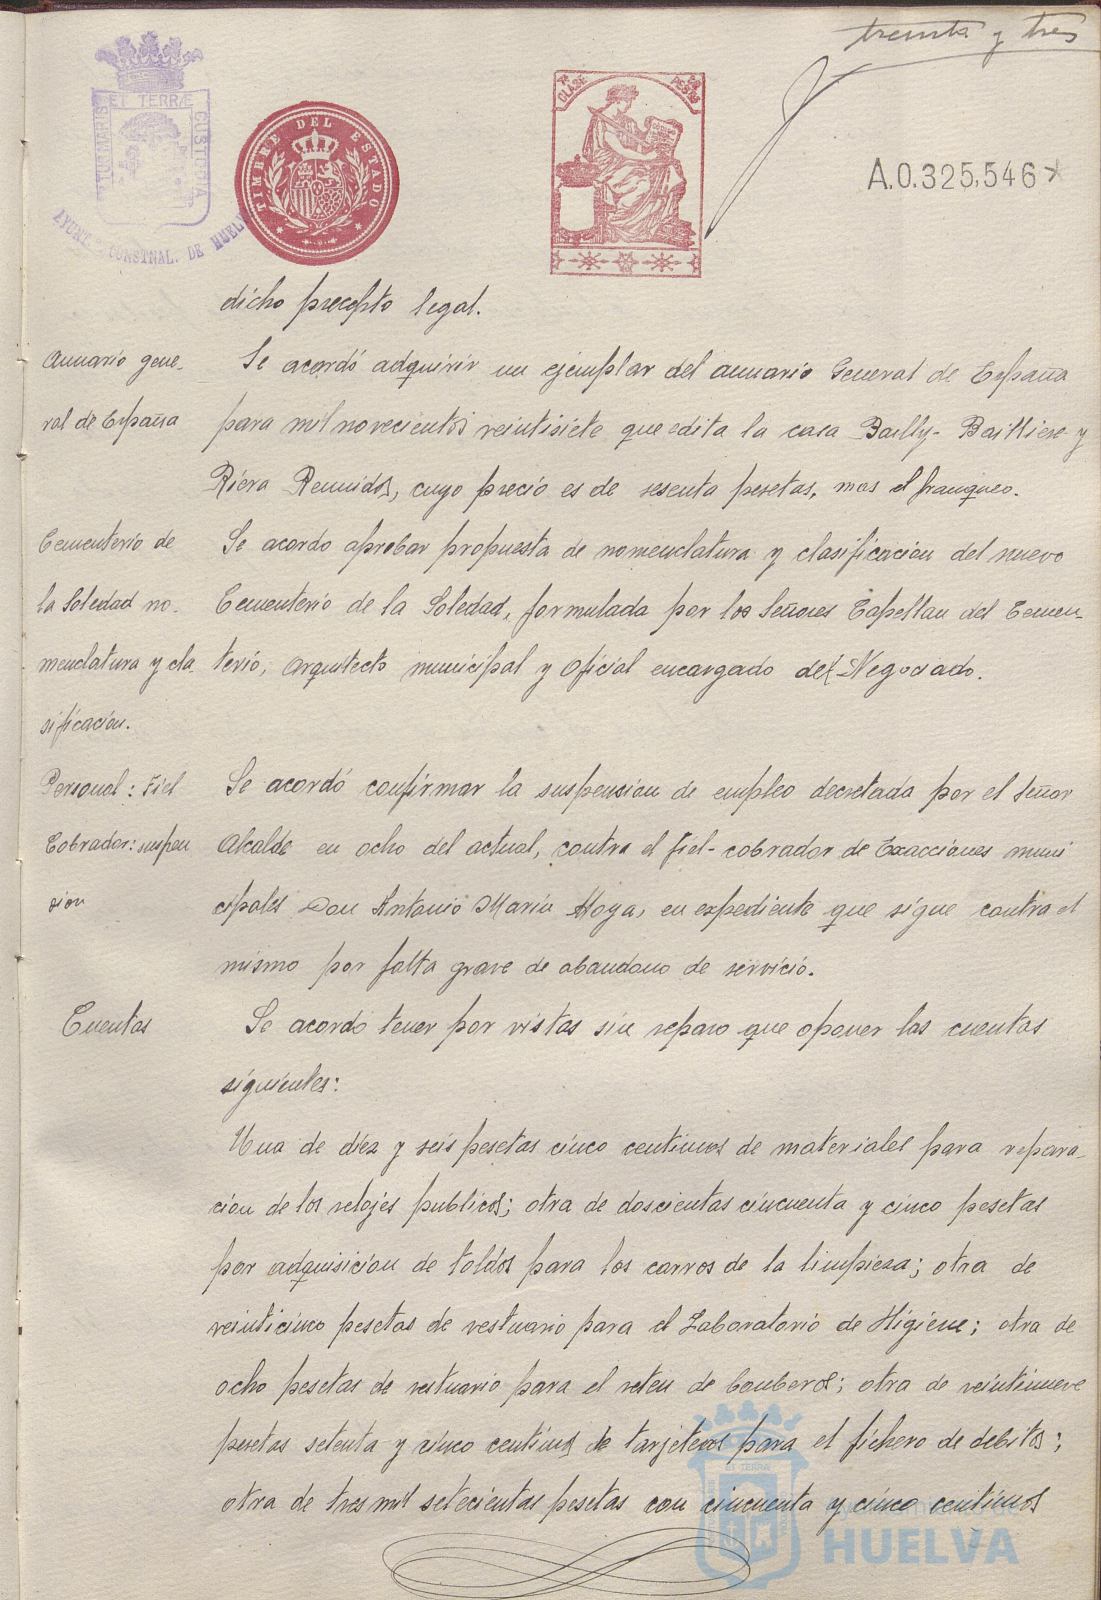 treinta y tres
PORTUS MARIS ET TERRÆ CUSTODIA
AYUNT. CONSTNAL. DE HUELVA
TIMBRE DEL ESTADO
7ª CLASE
PESETAS
A.0.325,546
dicho precepto legal.
Anuario gene-
ral de España
Se acordó adquirir un ejemplar del anuario General de España
para mil novecientos veintisiete que edita la casa Bailly-Bailliere y
Riera Reunidos, cuyo precio es de sesenta pesetas, mas el franqueo.
Cementerio de
la Soledad no-
menclatura y cla
sificación.
Se acordo aprobar propuesta de nomenclatura y clasificación del nuevo
Cementerio de la Soledad, formulada por los Señores Capellan del Cemen-
terio, Arquitecto municipal y Oficial encargado del Negociado.
Personal: Fiel
Cobrador: suspen
sion
Se acordó confirmar la suspensión de empleo decretada por el Señor
Alcalde en ocho del actual, contra el fiel-cobrador de Exacciones muni
cipales Don Antonio Marin Moya, en expediente que sigue contra el
mismo por falta grave de abandono de servicio.
Cuentas
Se acordó tener por vistas sin reparo que oponer las cuentas
siguientes:
Una de diez y seis pesetas cinco centimos de materiales para repara-
ción de los relojes publicos; otra de doscientas cincuenta y cinco pesetas
por adquisición de toldos para los carros de la limpieza; otra de
veinticinco pesetas de vestuario para el Laboratorio de Higiene; otra de
ocho pesetas de vestuario para el reten de bomberos; otra de veintinueve
pesetas setenta y cinco centimos de tarjeteros para el fichero de debitos;
otra de tres mil setecientas pesetas con cincuenta y cinco centimos
Ayuntamiento de
HUELVA